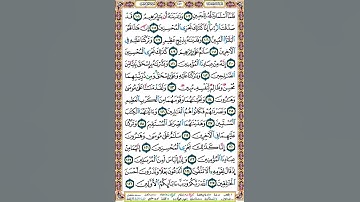 فَلَمَّا أَسْلَمَا وَتَلَّهُ لِلْجَبِينِ ١٠٣ وَنَادَيْنَاهُ أَن يَا إِبْرَاهِيمُ ١٠٤ قَدْ
صَدَّقْتَ الرُّؤْيَا إِنَّا كَذَلِكَ نَجْزِي الْمُحْسِنِينَ ١٠٥ إِنَّ هَذَا لَهُوَ
الْبَلَاءُ الْمُبِينُ ١٠٦ وَفَدَيْنَاهُ بِذِبْحٍ عَظِيمٍ ١٠٧ وَتَرَكْنَا عَلَيْهِ فِي
الْآخِرِينَ ١٠٨ سَلَامٌ عَلَى إِبْرَاهِيمَ ١٠٩ كَذَلِكَ نَجْزِي الْمُحْسِنِينَ
١١٠ إِنَّهُ مِنْ عِبَادِنَا الْمُؤْمِنِينَ ١١١ وَبَشَّرْنَاهُ بِإِسْحَاقَ نَبِيًّا مِّنَ
الصَّالِحِينَ ١١٢ وَبَارَكْنَا عَلَيْهِ وَعَلَى إِسْحَاقَ وَمِن ذُرِّيَّتِهِمَا مُحْسِنٌ
وَظَالِمٌ لِّنَفْسِهِ مُبِينٌ ١١٣ وَلَقَدْ مَنَنَّا عَلَى مُوسَى
وَهَارُونَ ١١٤ وَنَجَّيْنَاهُمَا وَقَوْمَهُمَا مِنَ الْكَرْبِ الْعَظِيمِ
١١٥ وَنَصَرْنَاهُمْ فَكَانُوا هُمُ الْغَالِبِينَ ١١٦ وَآتَيْنَاهُمَا الْكِتَابَ
الْمُسْتَبِينَ ١١٧ وَهَدَيْنَاهُمَا الصِّرَاطَ الْمُسْتَقِيمَ ١١٨ وَتَرَكْنَا
عَلَيْهِمَا فِي الْآخِرِينَ ١١٩ سَلَامٌ عَلَى مُوسَى وَهَارُونَ
١٢٠ إِنَّا كَذَلِكَ نَجْزِي الْمُحْسِنِينَ ١٢١ إِنَّهُمَا مِنْ
عِبَادِنَا الْمُؤْمِنِينَ ١٢٢ وَإِنَّ إِلْيَاسَ لَمِنَ الْمُرْسَلِينَ ١٢٣ إِذْ
قَالَ لِقَوْمِهِ أَلَا تَتَّقُونَ ١٢٤ أَتَدْعُونَ بَعْلًا وَتَذَرُونَ أَحْسَنَ
الْخَالِقِينَ ١٢٥ اللَّهَ رَبَّكُمْ وَرَبَّ آبَائِكُمُ الْأَوَّلِينَ ١٢٦